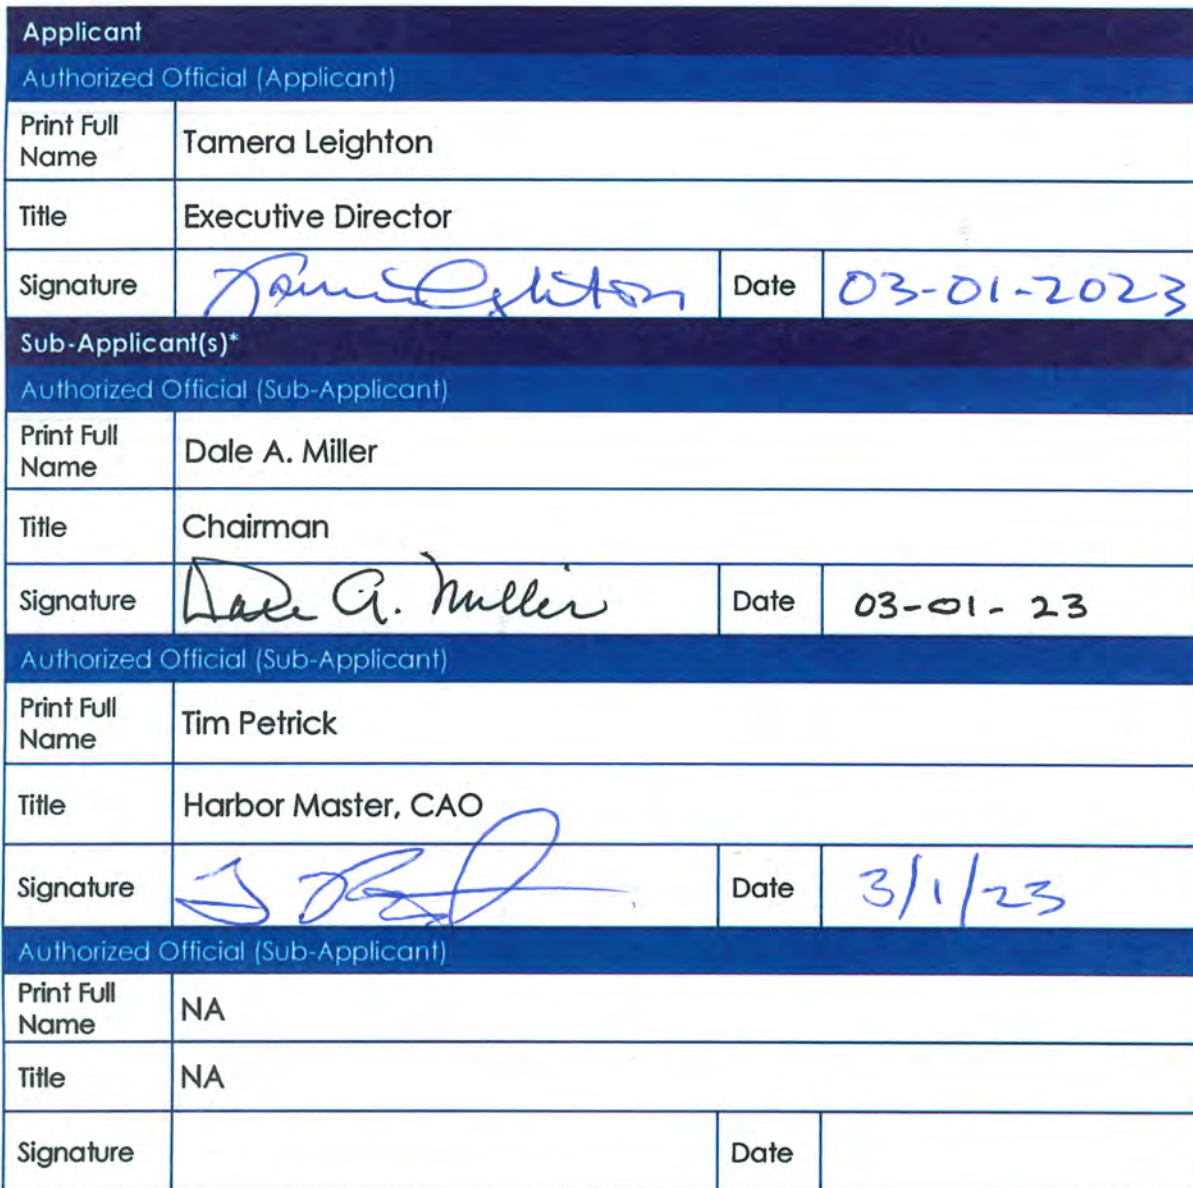 Applicant
Authorized Official (Applicant)
Print Full Name Tamera Leighton
Title Executive Director
Signature Date 03-01-2023
Sub-Applicant(s)*
Authorized Official (Sub-Applicant)
Print Full Name Dale A. Miller
Title Chairman
Signature Dale A. Miller Date 03-01-23
Authorized Official (Sub-Applicant)
Print Full Name Tim Petrick
Title Harbor Master, CAO
Signature Date 3/1/23
Authorized Official (Sub-Applicant)
Print Full Name NA
Title NA
Signature Date